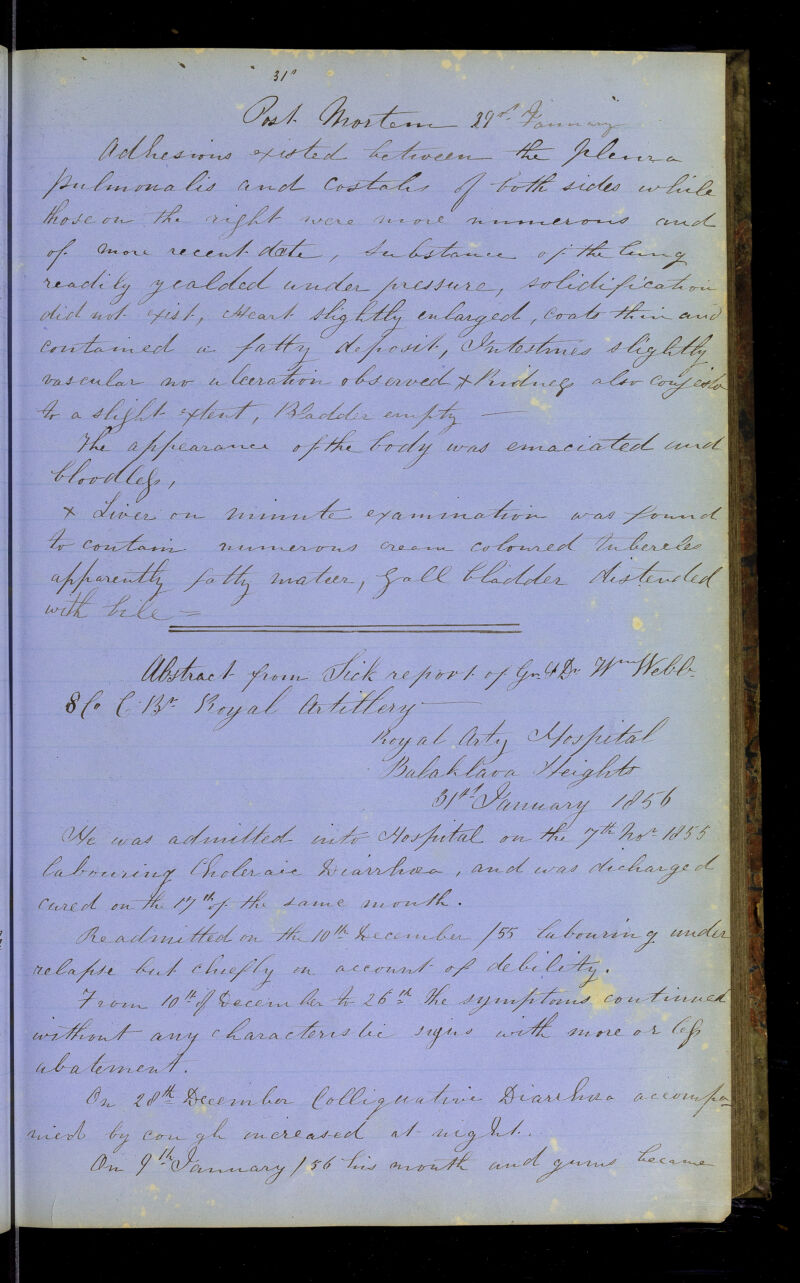 31st
Post Mortem 29th January
Adhesions existed between the pleura
pulmonalis and Costalis of both sides while
those on the right were more numerous and
of more recent date, substance of the lung
readily yealded under pressure, solidification
did not exist, Heart slightly enlarged, coats thin and
contained a fatty deposit, Intestines slightly
vascular no ulceration observed x Kidneys also congested
to a slight extent, Bladder empty —
The appearance of the body was emaciated and
bloodless,
x Liver on minute examination was found
to contain numerous cream coloured tubercles
apparently fatty mateer, gall bladder distended
with bile =
Abstract from Sick report of Gr & Dr Wm Webb
8 Co C Bn Royal Artillery
Royal Arty Hospital
Balaklava Heights
31st January 1856
He was admitted into Hospital on the 7th Nor 1855
labouring Choleraic Diarrhœa, and was dicharged
cured on the 17th of the same month.
Readmitted on the 10th December /55 labouring under
relapse but chiefly on account of debility.
From 10th of December to 26th the symptoms continued
without any characteristic signs with more or less
abatement.
On 28th December Colliquative Diarrhœa accompa-
nied by cough increased at night.
On 9th January /56 his mouth and gums became